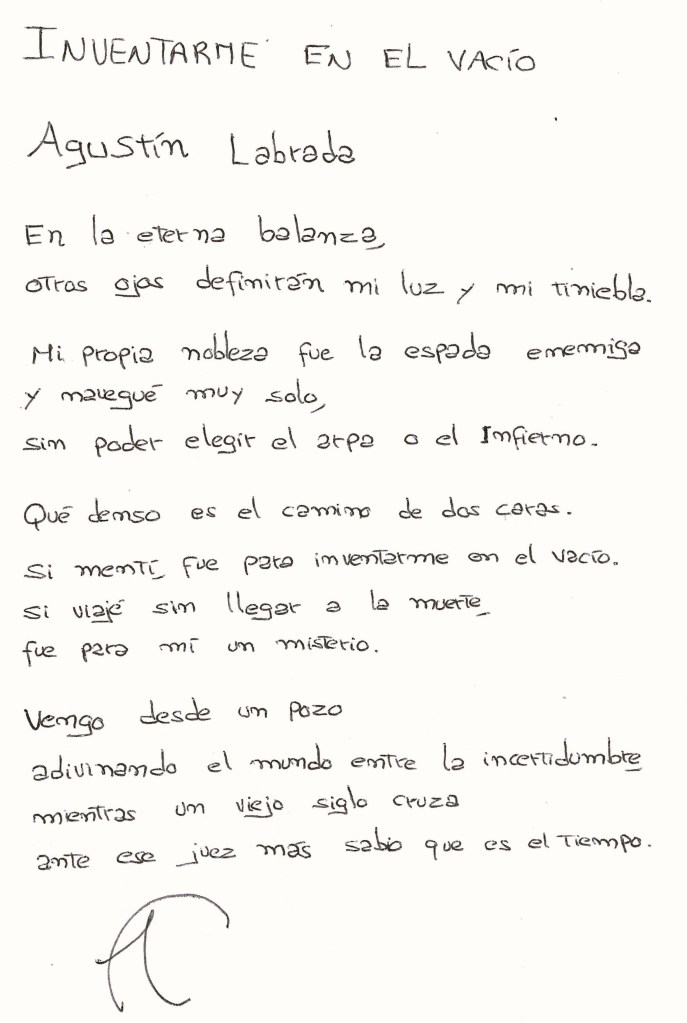 INVENTARME EN EL VACÍO
Agustín Labrada
En la eterna balanza,
otros ojos definirán mi luz y mi tiniebla.
Mi propia nobleza fue la espada enemiga
y navegué muy solo,
sin poder elegir el arpa o el Infierno.
Qué denso es el camino de dos caras.
Si mentí, fue para inventarme en el vacío.
Si viajé sin llegar a la muerte,
fue para mí un misterio.
Vengo desde un pozo
adivinando el mundo entre la incertidumbre
mientras un viejo siglo cruza
ante ese juez más sabio que es el tiempo.